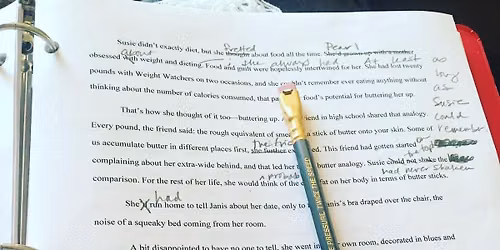 Susie didn't exactly diet, but she thought about food all the time. She'd grown up with a mother
fretted
Pearl
about
obsessed with weight and dieting. Food and guilt were hopelessly intertwined for her. She had lost twenty
she always had. At least as
pounds with Weight Watchers on two occasions, and she couldn't remember ever eating anything without
long
thinking about the number of calories consumed, that food's potential for buttering her up.
as
Susie
That's how she thought of it too—buttering up. friend in high school shared that analogy.
could
Every pound, the friend said: the rough equivalent of a stick of butter onto your skin. Some of
remember
the friend
us accumulate butter in different places first, she further This friend had gotten started
complaining about her extra-wide behind, and that led her butter analogy. Susie could not shake the
had never shaken
comparison. For the rest of her life, she would think of the fat on her body in terms of butter sticks.
had
She run home to tell Janis about her date, only to Janis's bra draped over the chair, the
noise of a squeaky bed coming from her room.
A bit disappointed to have no one to tell, she went own room, decorated in blues and
PRESSURE, TWICE THE SPEED